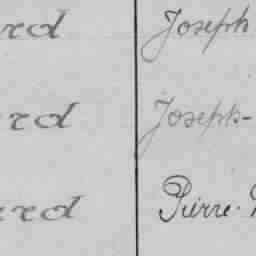 rd Joseph
rd Joseph-
rd Pierre-